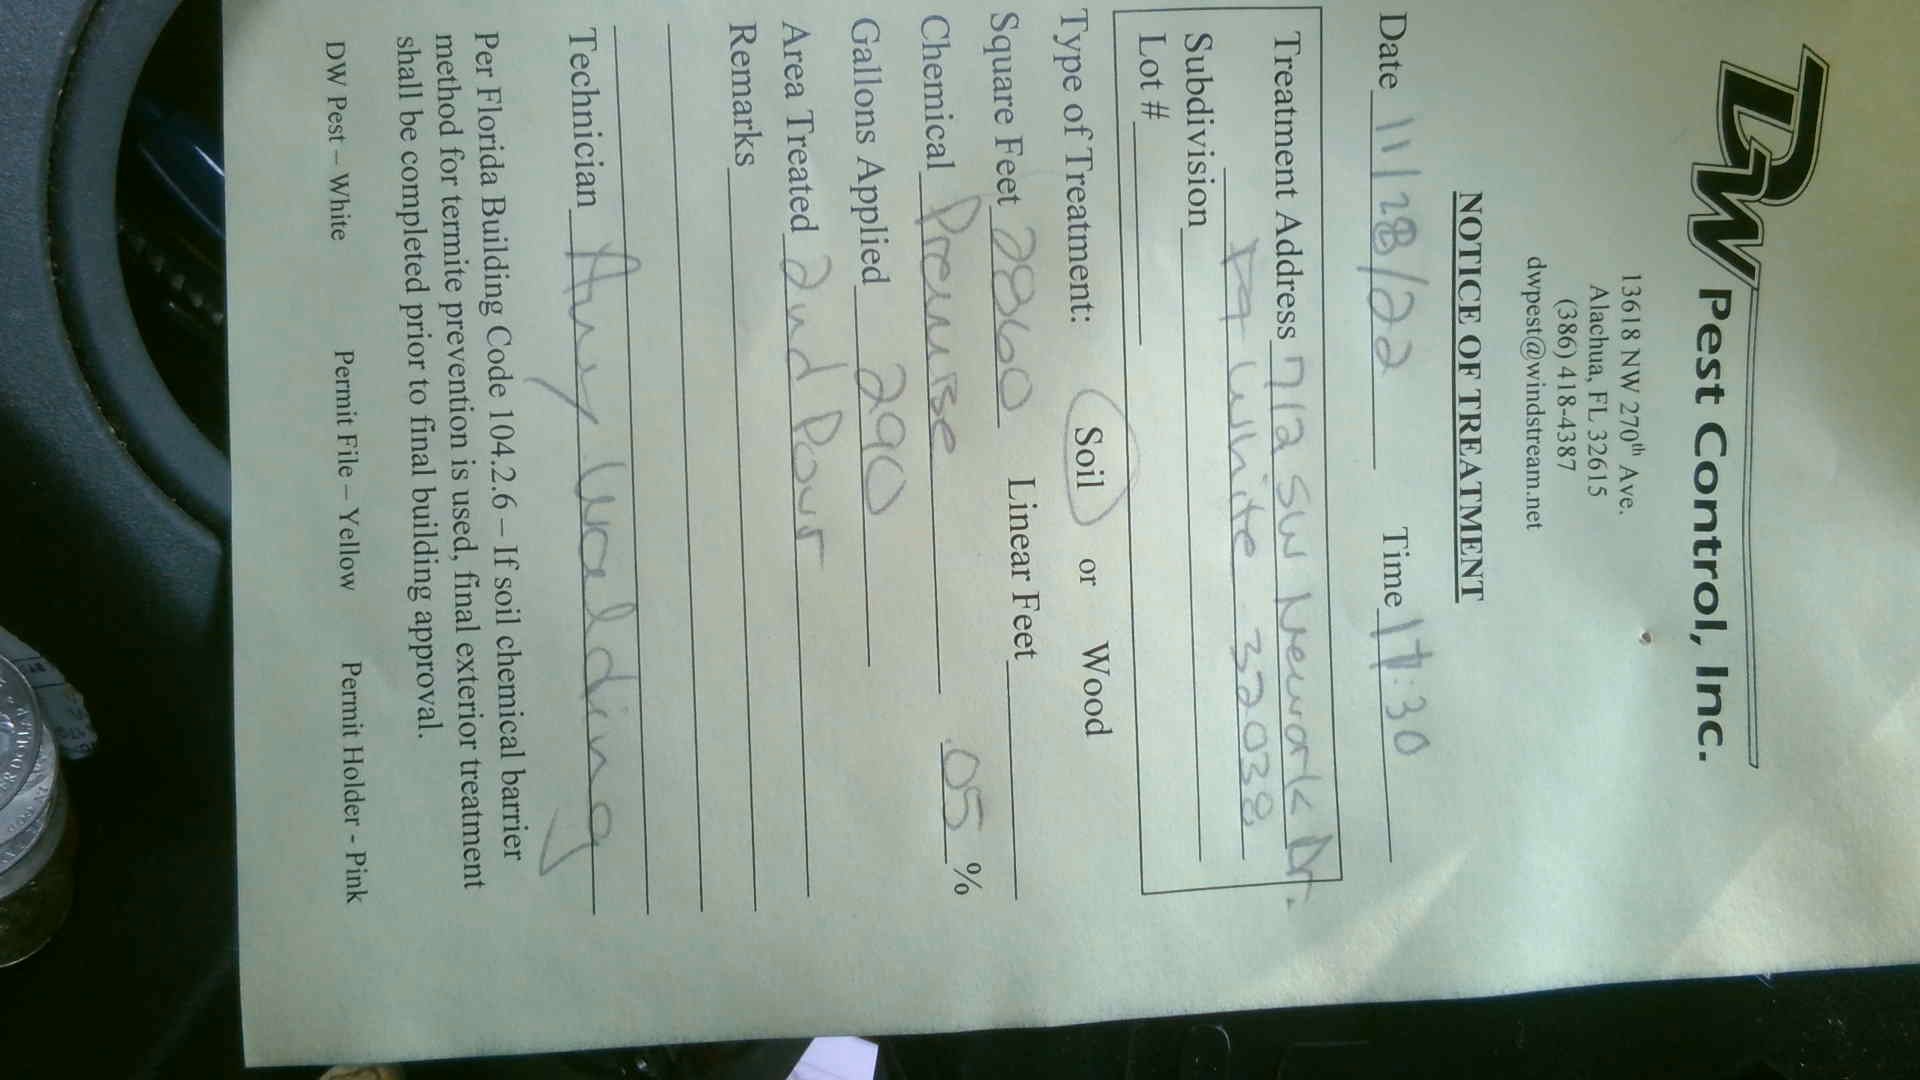 DW Pest Control, Inc.
13618 NW 270th Ave.
Alachua, FL 32615
(386) 418-4387
dwpest@windstream.net
NOTICE OF TREATMENT
Date 11/28/22 Time 17:30
Treatment Address 712 SW Newark Dr.
Ft White 32038
Subdivision
Lot #
Type of Treatment: Soil or Wood
Square Feet 2860 Linear Feet
Chemical Premise .05 %
Gallons Applied 290
Area Treated 2nd Pour
Remarks
Technician
Per Florida Building Code 104.2.6 – If soil chemical barrier
method for termite prevention is used, final exterior treatment
shall be completed prior to final building approval.
DW Pest – White Permit File – Yellow Permit Holder - Pink